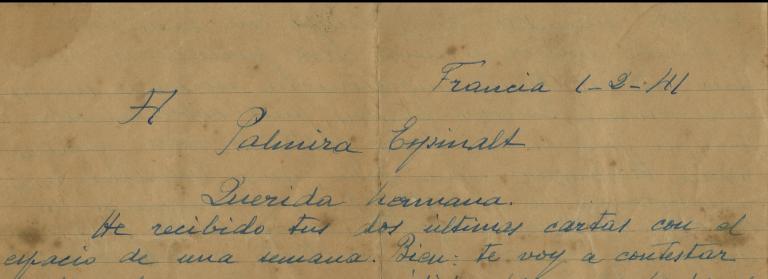 Francia 1-2-41
A
Palmira Espinalt
Querida hermana.
He recibido tus dos ultimas cartas con el
espacio de una semana. Bien: te voy a contestar